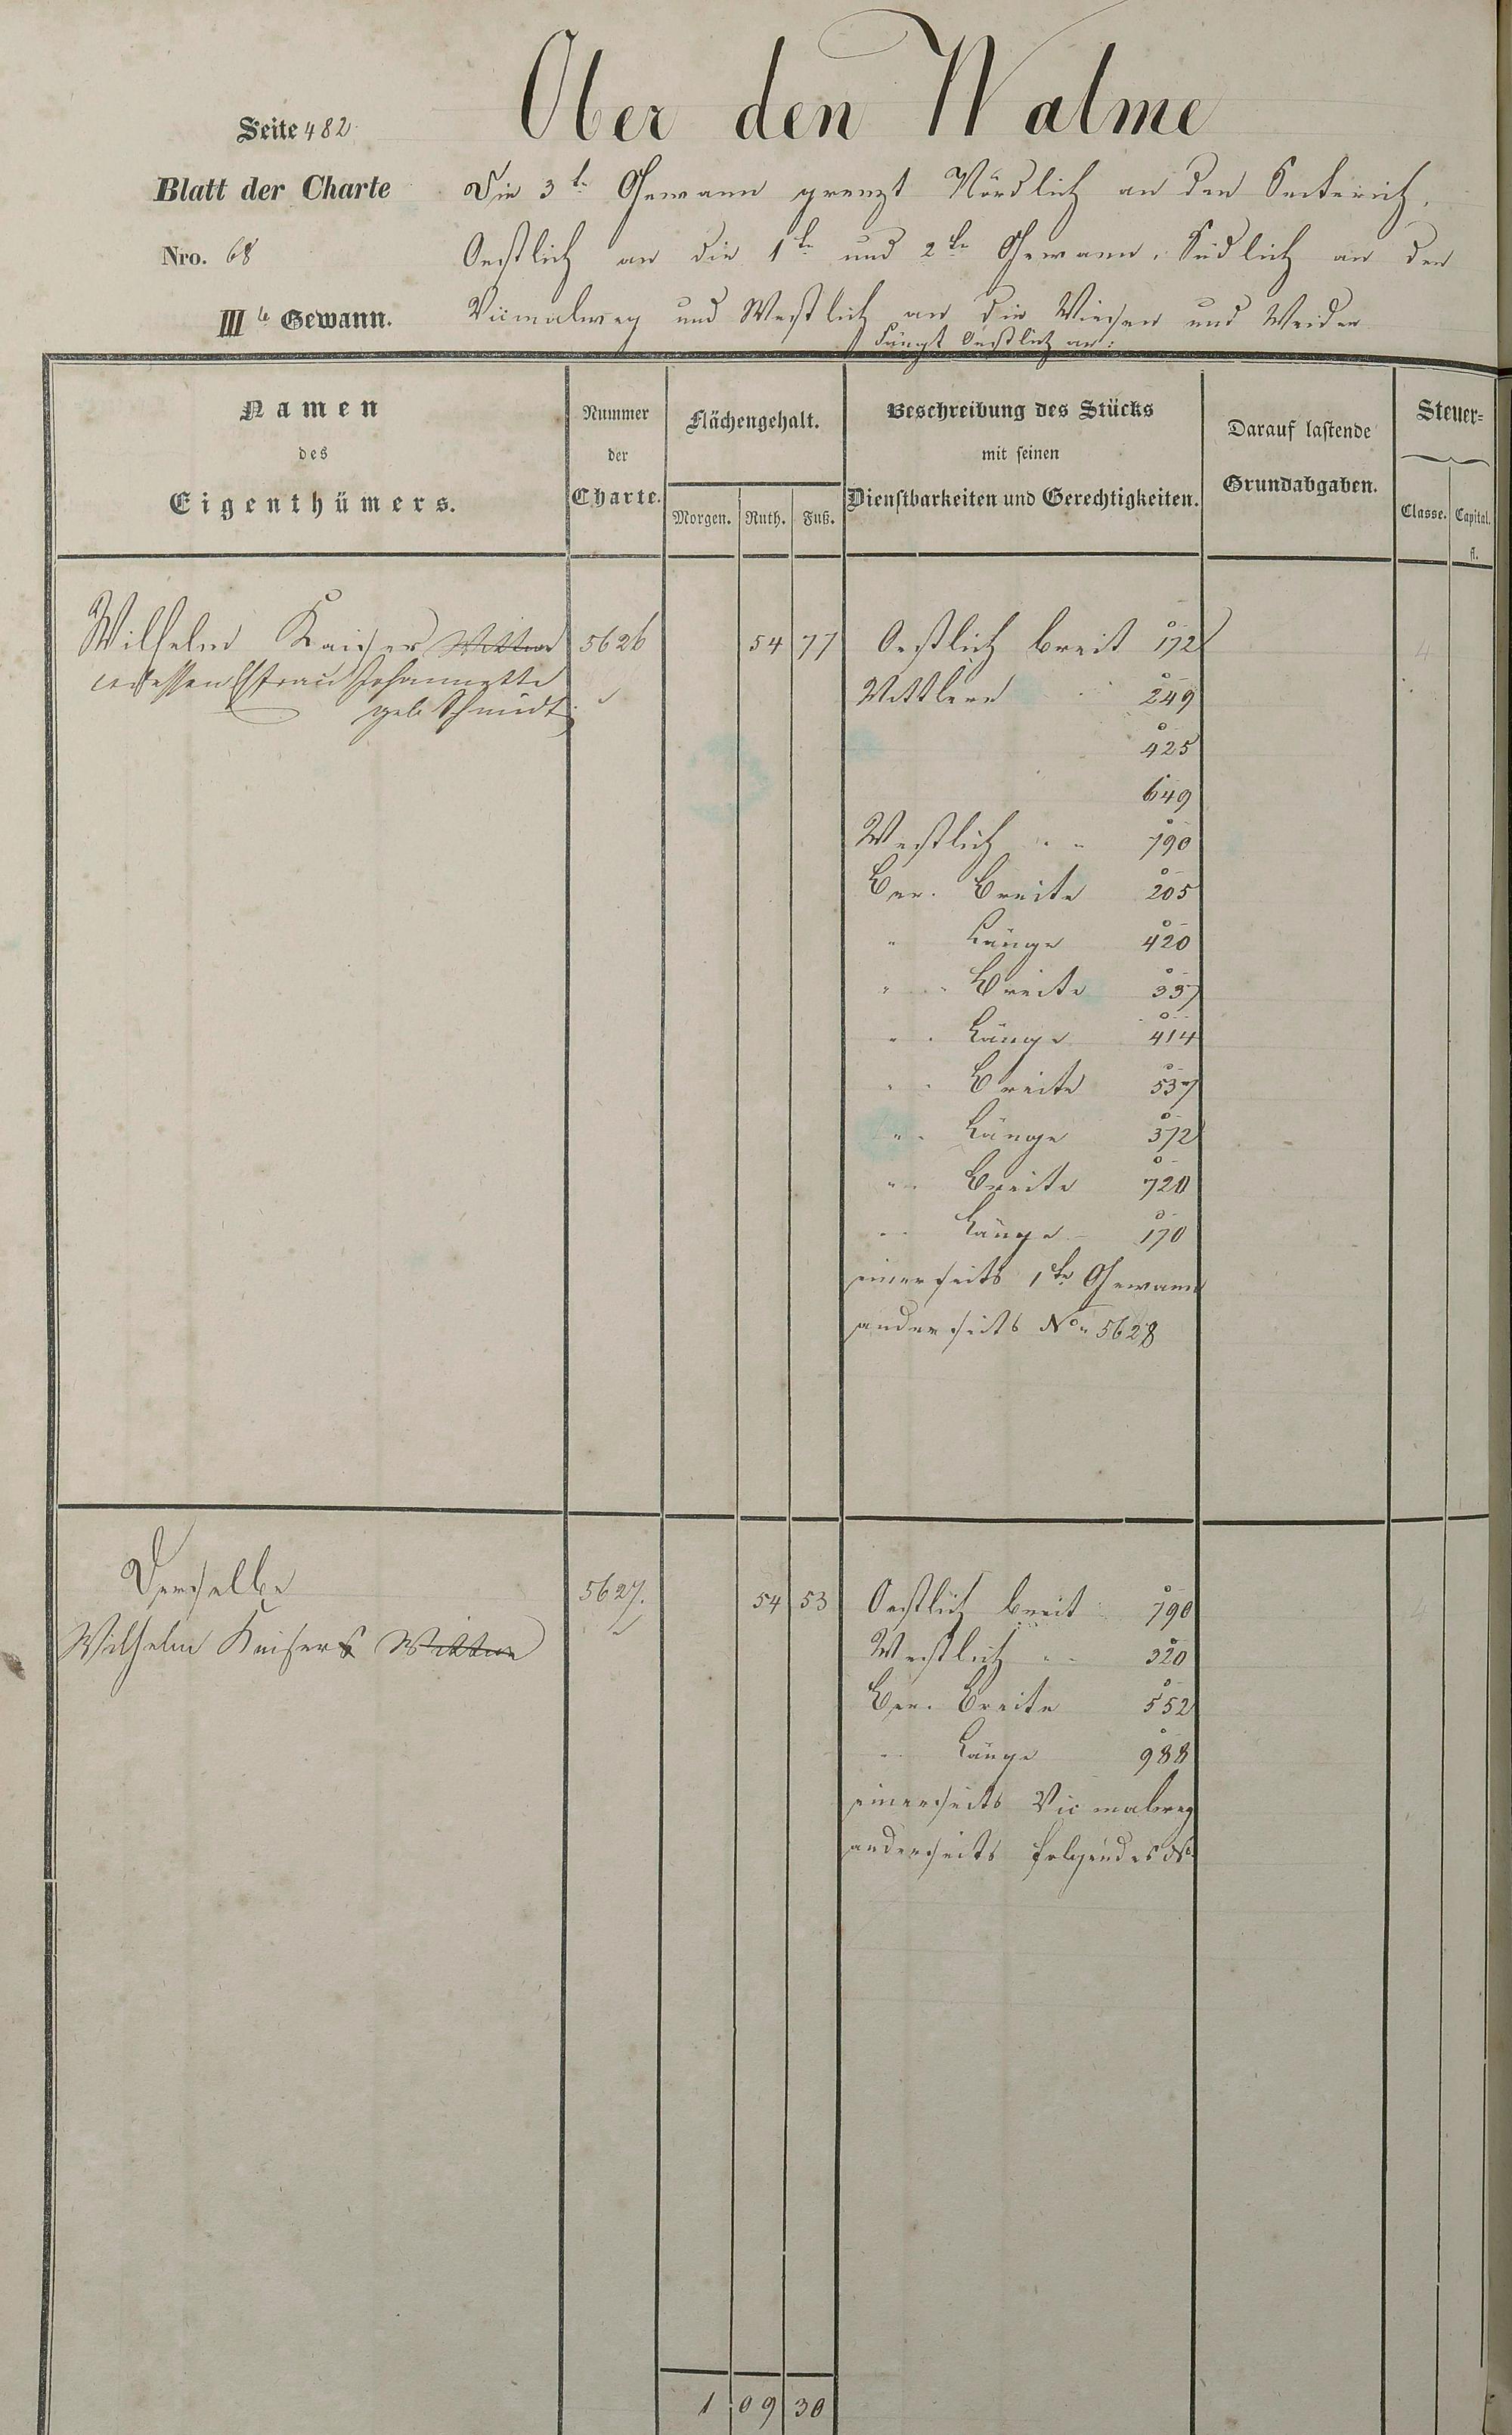 Ober den Walme
Seite 482
Blatt der Charte
Nro. 68
III te Gewann.
Die 3te Gewann grenzt Nördlich an den Seiterich,
Oestlich an die 1te und 2te Gewann, Südlich an den
Vicinalweg und Westlich an die Wiesen und Weiden
Fängt Oestlich an:
Namen
des
Eigenthümers.
Nummer
der
Charte.
Flächengehalt.
Morgen. Ruth. Fuß.
Beschreibung des Stücks
mit seinen
Dienstbarkeiten und Gerechtigkeiten.
Darauf lastende
Grundabgaben.
Steuer-
Classe. Capital.
fl.
Wilhelm Kaiser Wittwe 5626 54 77 Oestlich breit 172
dessen Ehefrau Johannette
geb. Schmidt
Mittlere 249
425
649
Westlich " " 790
Ber. Breite 205
" Länge 420
" " Breite 337
" " Länge 414
" " Breite 537
" " Länge 372
" " Breite 720
" " Länge 170
einerseits 1te Gewann
anderseits No. 5628
4
Derselbe 5627. 54 53 Oestlich breit 790
Wilhelm Kaisers Wittwe
Westlich " " 320
Ber. Breite 552
" " Länge 988
einerseits Vicinalweg
anderseits folgendes
4
1 09 30